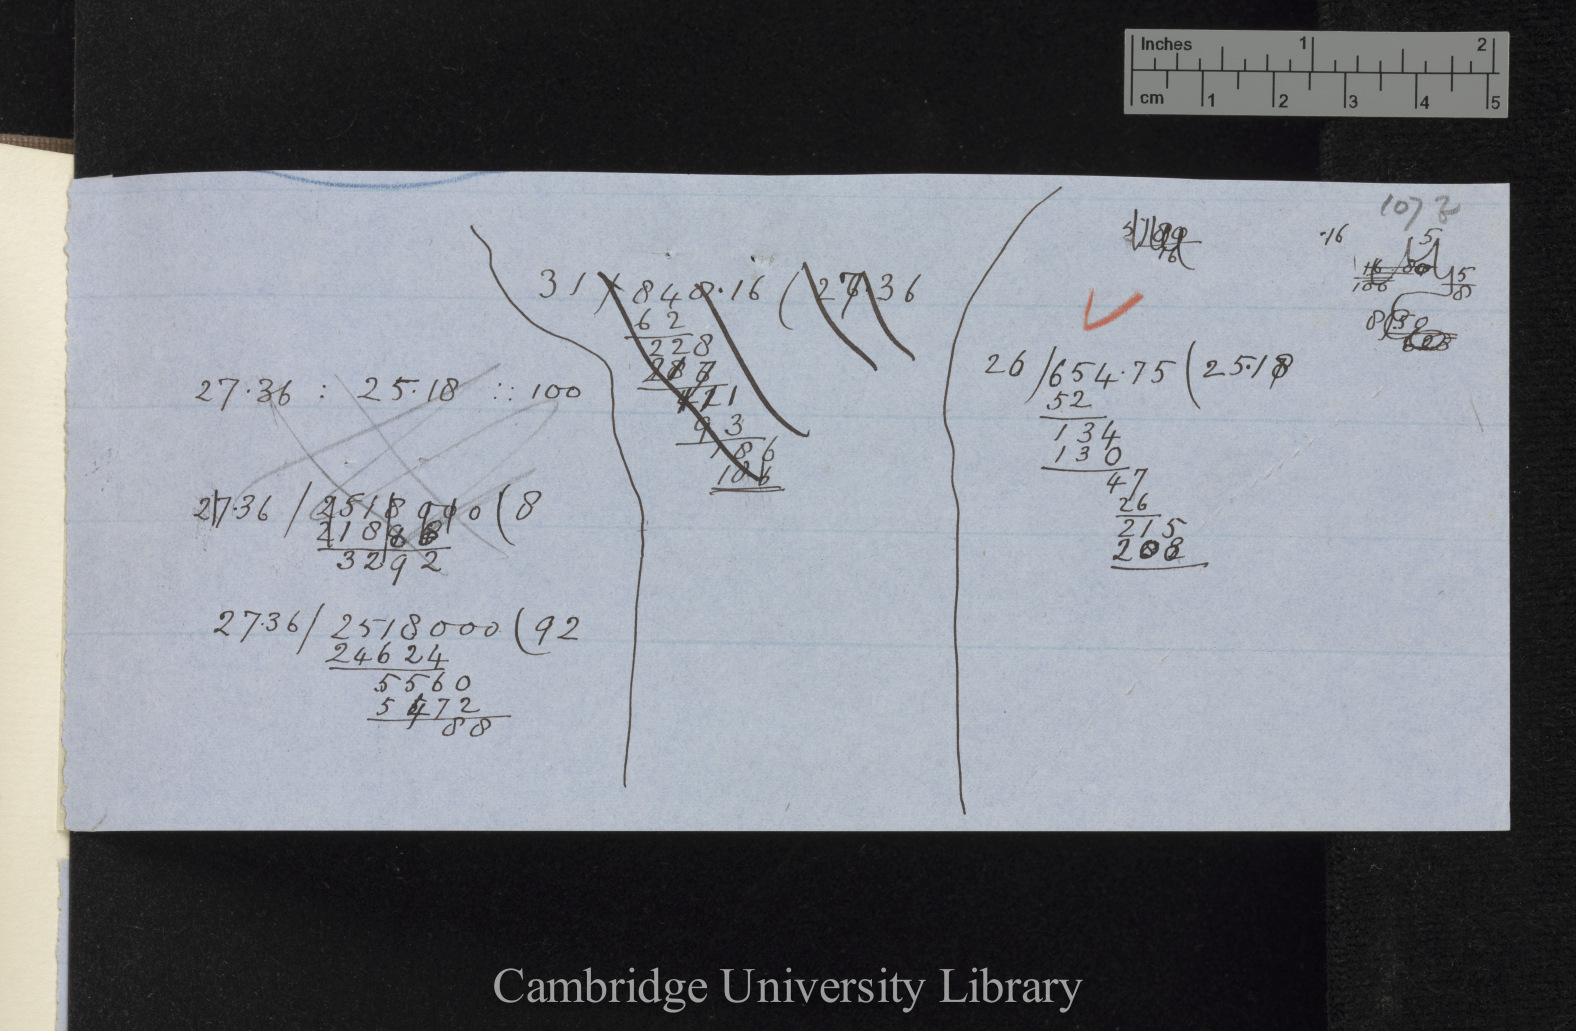 Inches 1 2
cm 1 2 3 4 5
107
27.36 : 25.18 :: 100
27.36 / 2518000 ( 8
21888
3292
27.36 / 2518000 ( 92
24624
5560
5472
88
31 ) 848.16 ( 27.36
62
228
217
111
93
186
186
.16
15
26 / 654.75 ( 25.18
52
134
130
47
26
215
208
Cambridge University Library